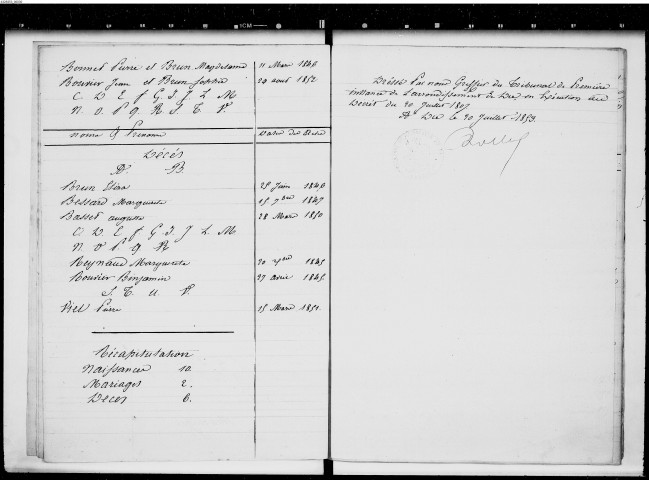 Bonnet Pierre et Brun Magdelaine 11 Mars 1846
Bouvier Jean et Brun Sophie 29 aout 1852
C D E f G I J L M
N O P Q R S T V.
Noms & Prénoms Dates des Actes
Décés
A. B.
Brun 25 Juin 1846
Bessard Marguerite 15 7bre 1847
Basset auguste 28 Mars 1850
C D E f G I J L M
N O P Q R
Reynaud Marguerite 20 1845
Bouvier Benjamin 27 avril 1845.
S. T. U. V.
Viel Pierre 15 Mars 1851.
Récapitulation
Naissances 10.
Mariages 2.
Décés 6.
Dressé Par nous Greffier du Tribunal de Première
instance de l'arrondissement de Die en exécution du
Décret du 20 Juillet 1807
A Die le 20 Juillet 1853.